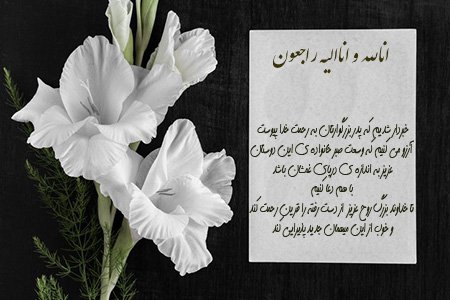 انالله و اناالیه راجعون
خبردار شدیم که پدر بزرگوارتان به رحمت خدا پیوست
آرزو می کنیم که وسعت صبر خانواده ی این دوستان
عزیز به اندازه ی دریای غمشان باشد
با هم دعا کنیم
تا خداوند بزرگ روح عزیز از دست رفته را قرین رحمت کند
و خوب از این میهمان جدید پذیرایی کند